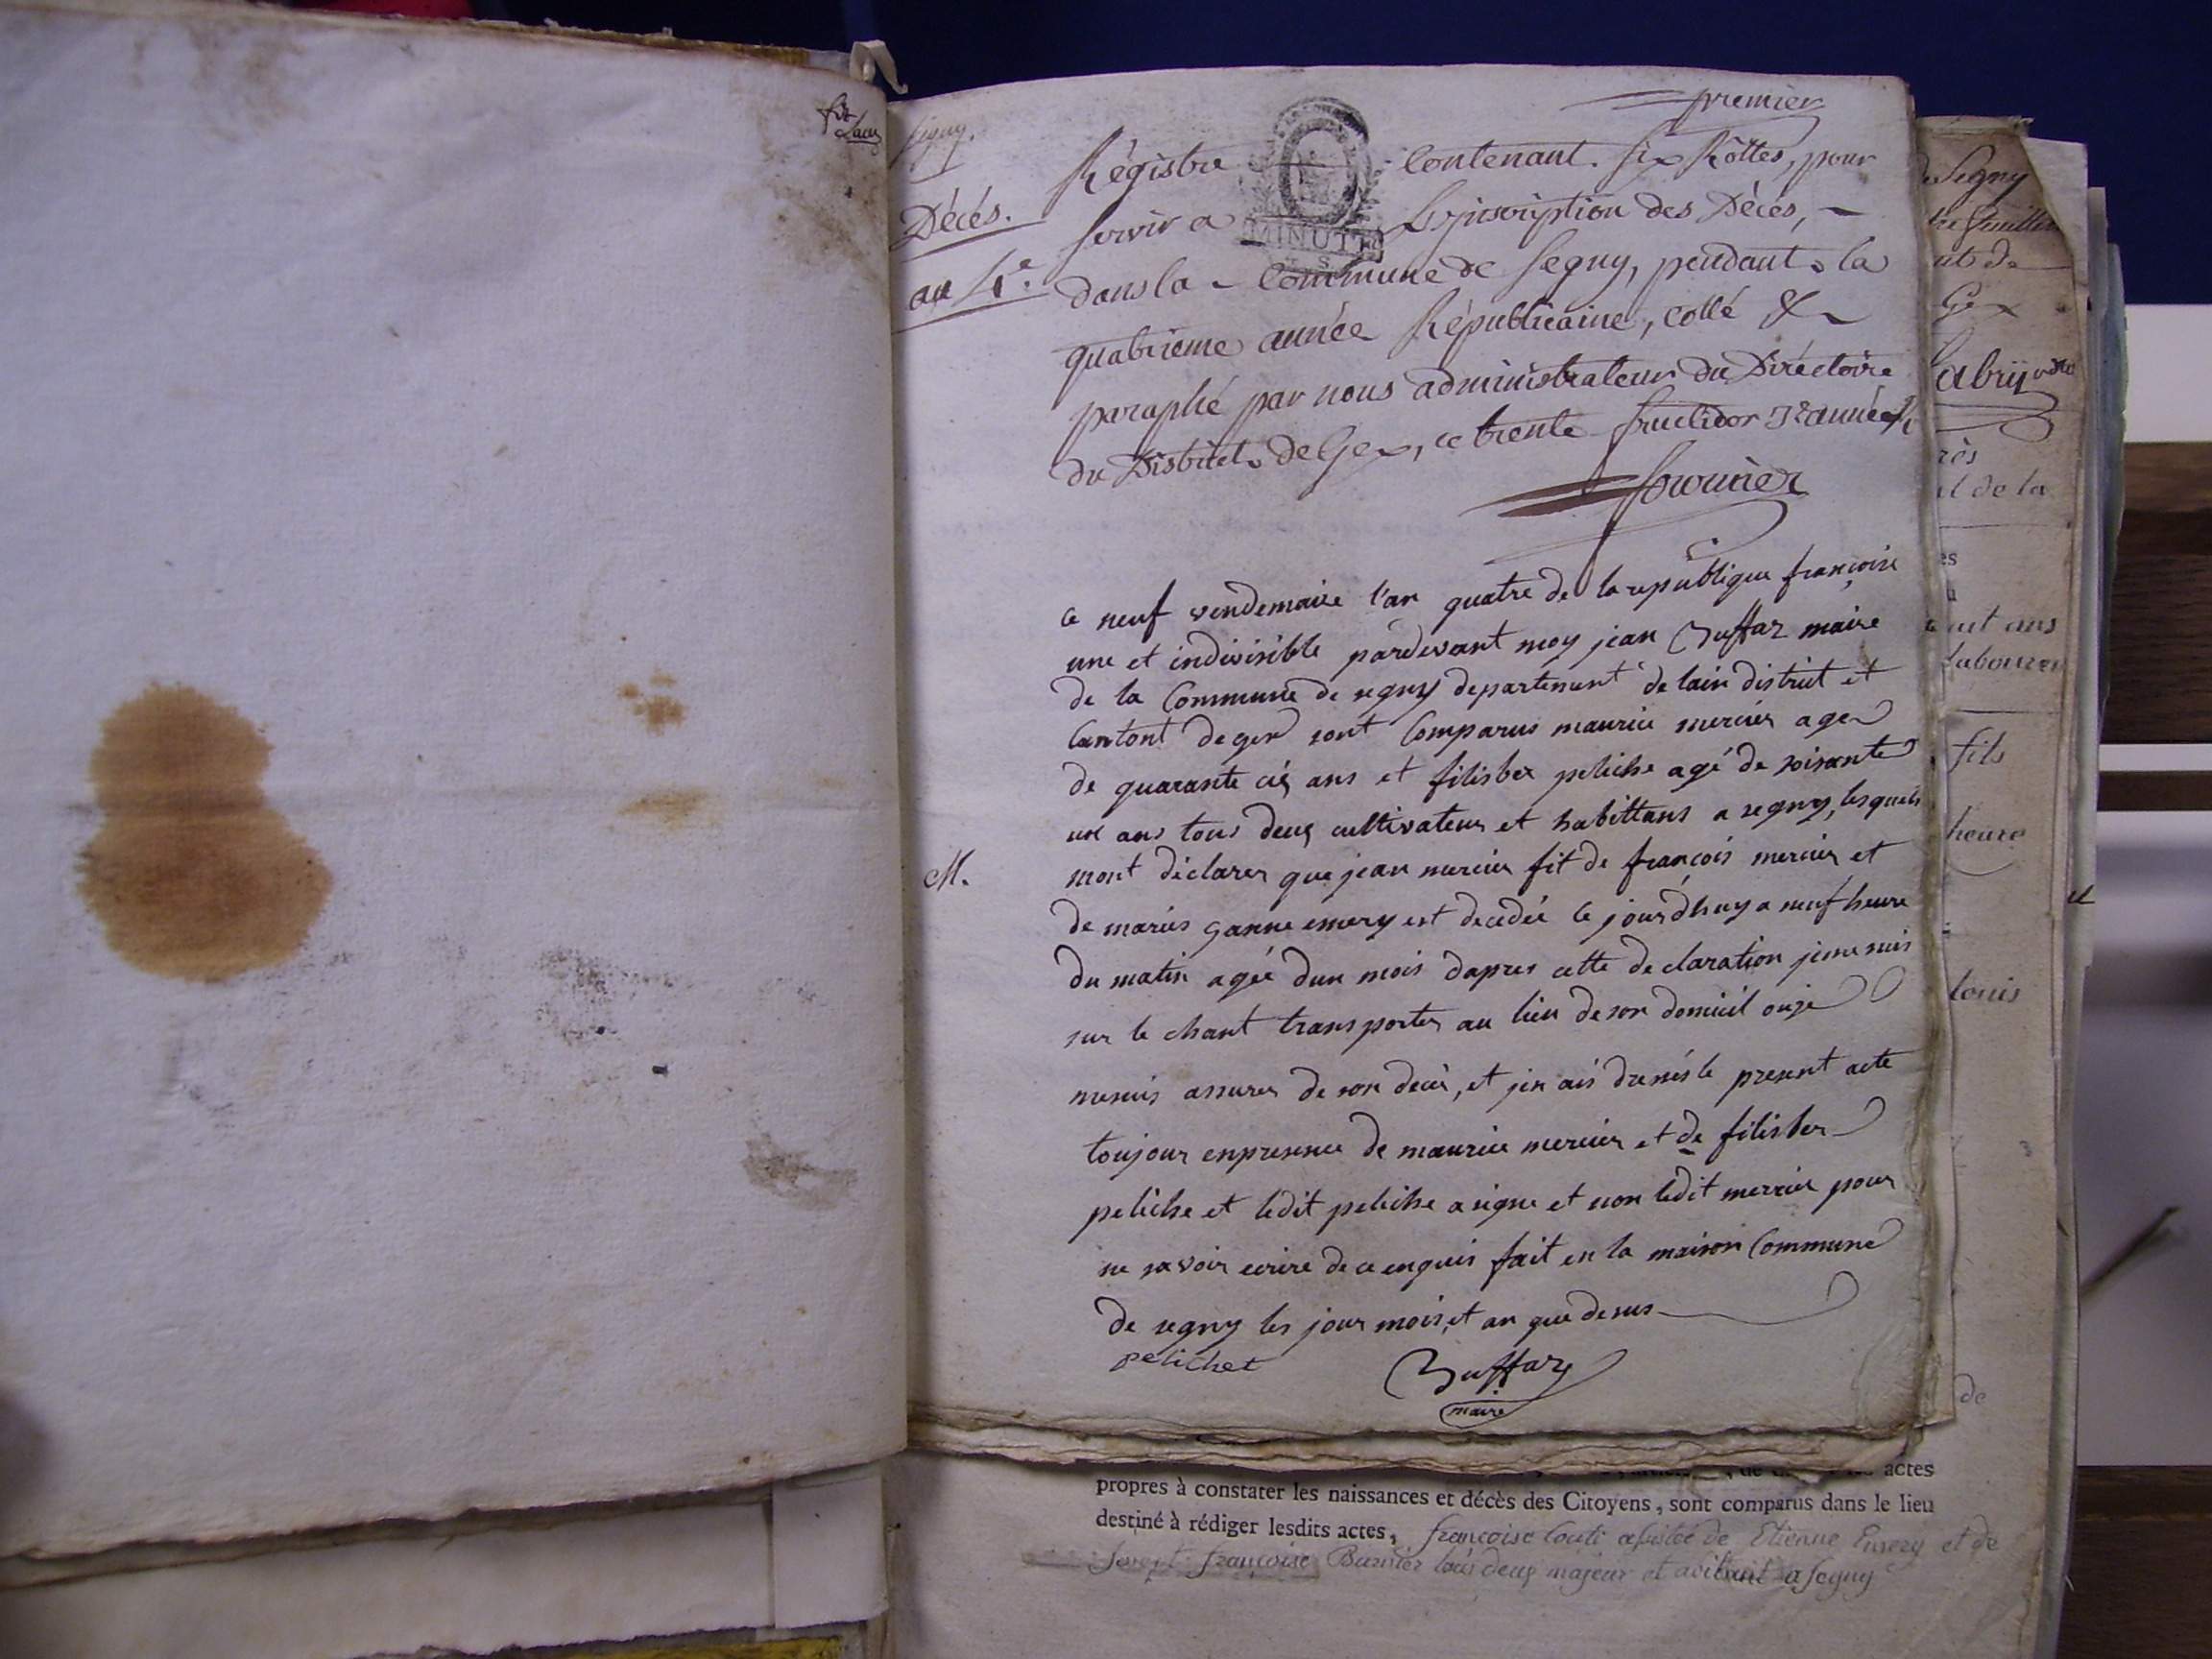 premier
Segny.
Décés.
an 4.e
Régistre contenant six Rôlles, pour
servir a L'jnscription des Décés,
dans la Commune de Segny, pendant la
quatrieme année Républicaine, collé &
paraphé par nous administrateur du Diréctoire
du District de Gex, ce trente fructidor 3e année
fournier
MINUTE
ce neuf vendemaire l'an quatre de la republique françoise
une et indivisible pardevant moy jean Buffaz maire
de la Commune de segny departement de lain district et
Cantont de gex sont Comparus maurice mercier age
de quarante cis ans et filisber peliche agé de soisante
un ans tous deux cultivateur et habittans a segny, lesquels
M.
mont déclarer que jean mercier fit de françois mercier et
de emery est decedée ce jourdhuy a neuf heure
du matin agée dun mois dapres cette declaration jeme suis
sur le chant transporter au lieu de son domicil ouje
mesuis assurer de son decès, et jen ais dressés le present acte
toujour enpresence de maurice mercier et de filisber
peliche et ledit peliche a signe et non ledit mercier pour
ne savoir ecrire de ce enquis fait en la maison Commune
de segny les jour mois, et an que desus
pelichet Buffaz
maire
actes
propres à constater les naissances et décès des Citoyens, sont comparus dans le lieu
destiné à rédiger lesdits actes, françoise de Etienne Emery et de
françoise Burnier tous deux majeur et a segny
de Segny
Gex
ut ans
fils
heure
louis
de